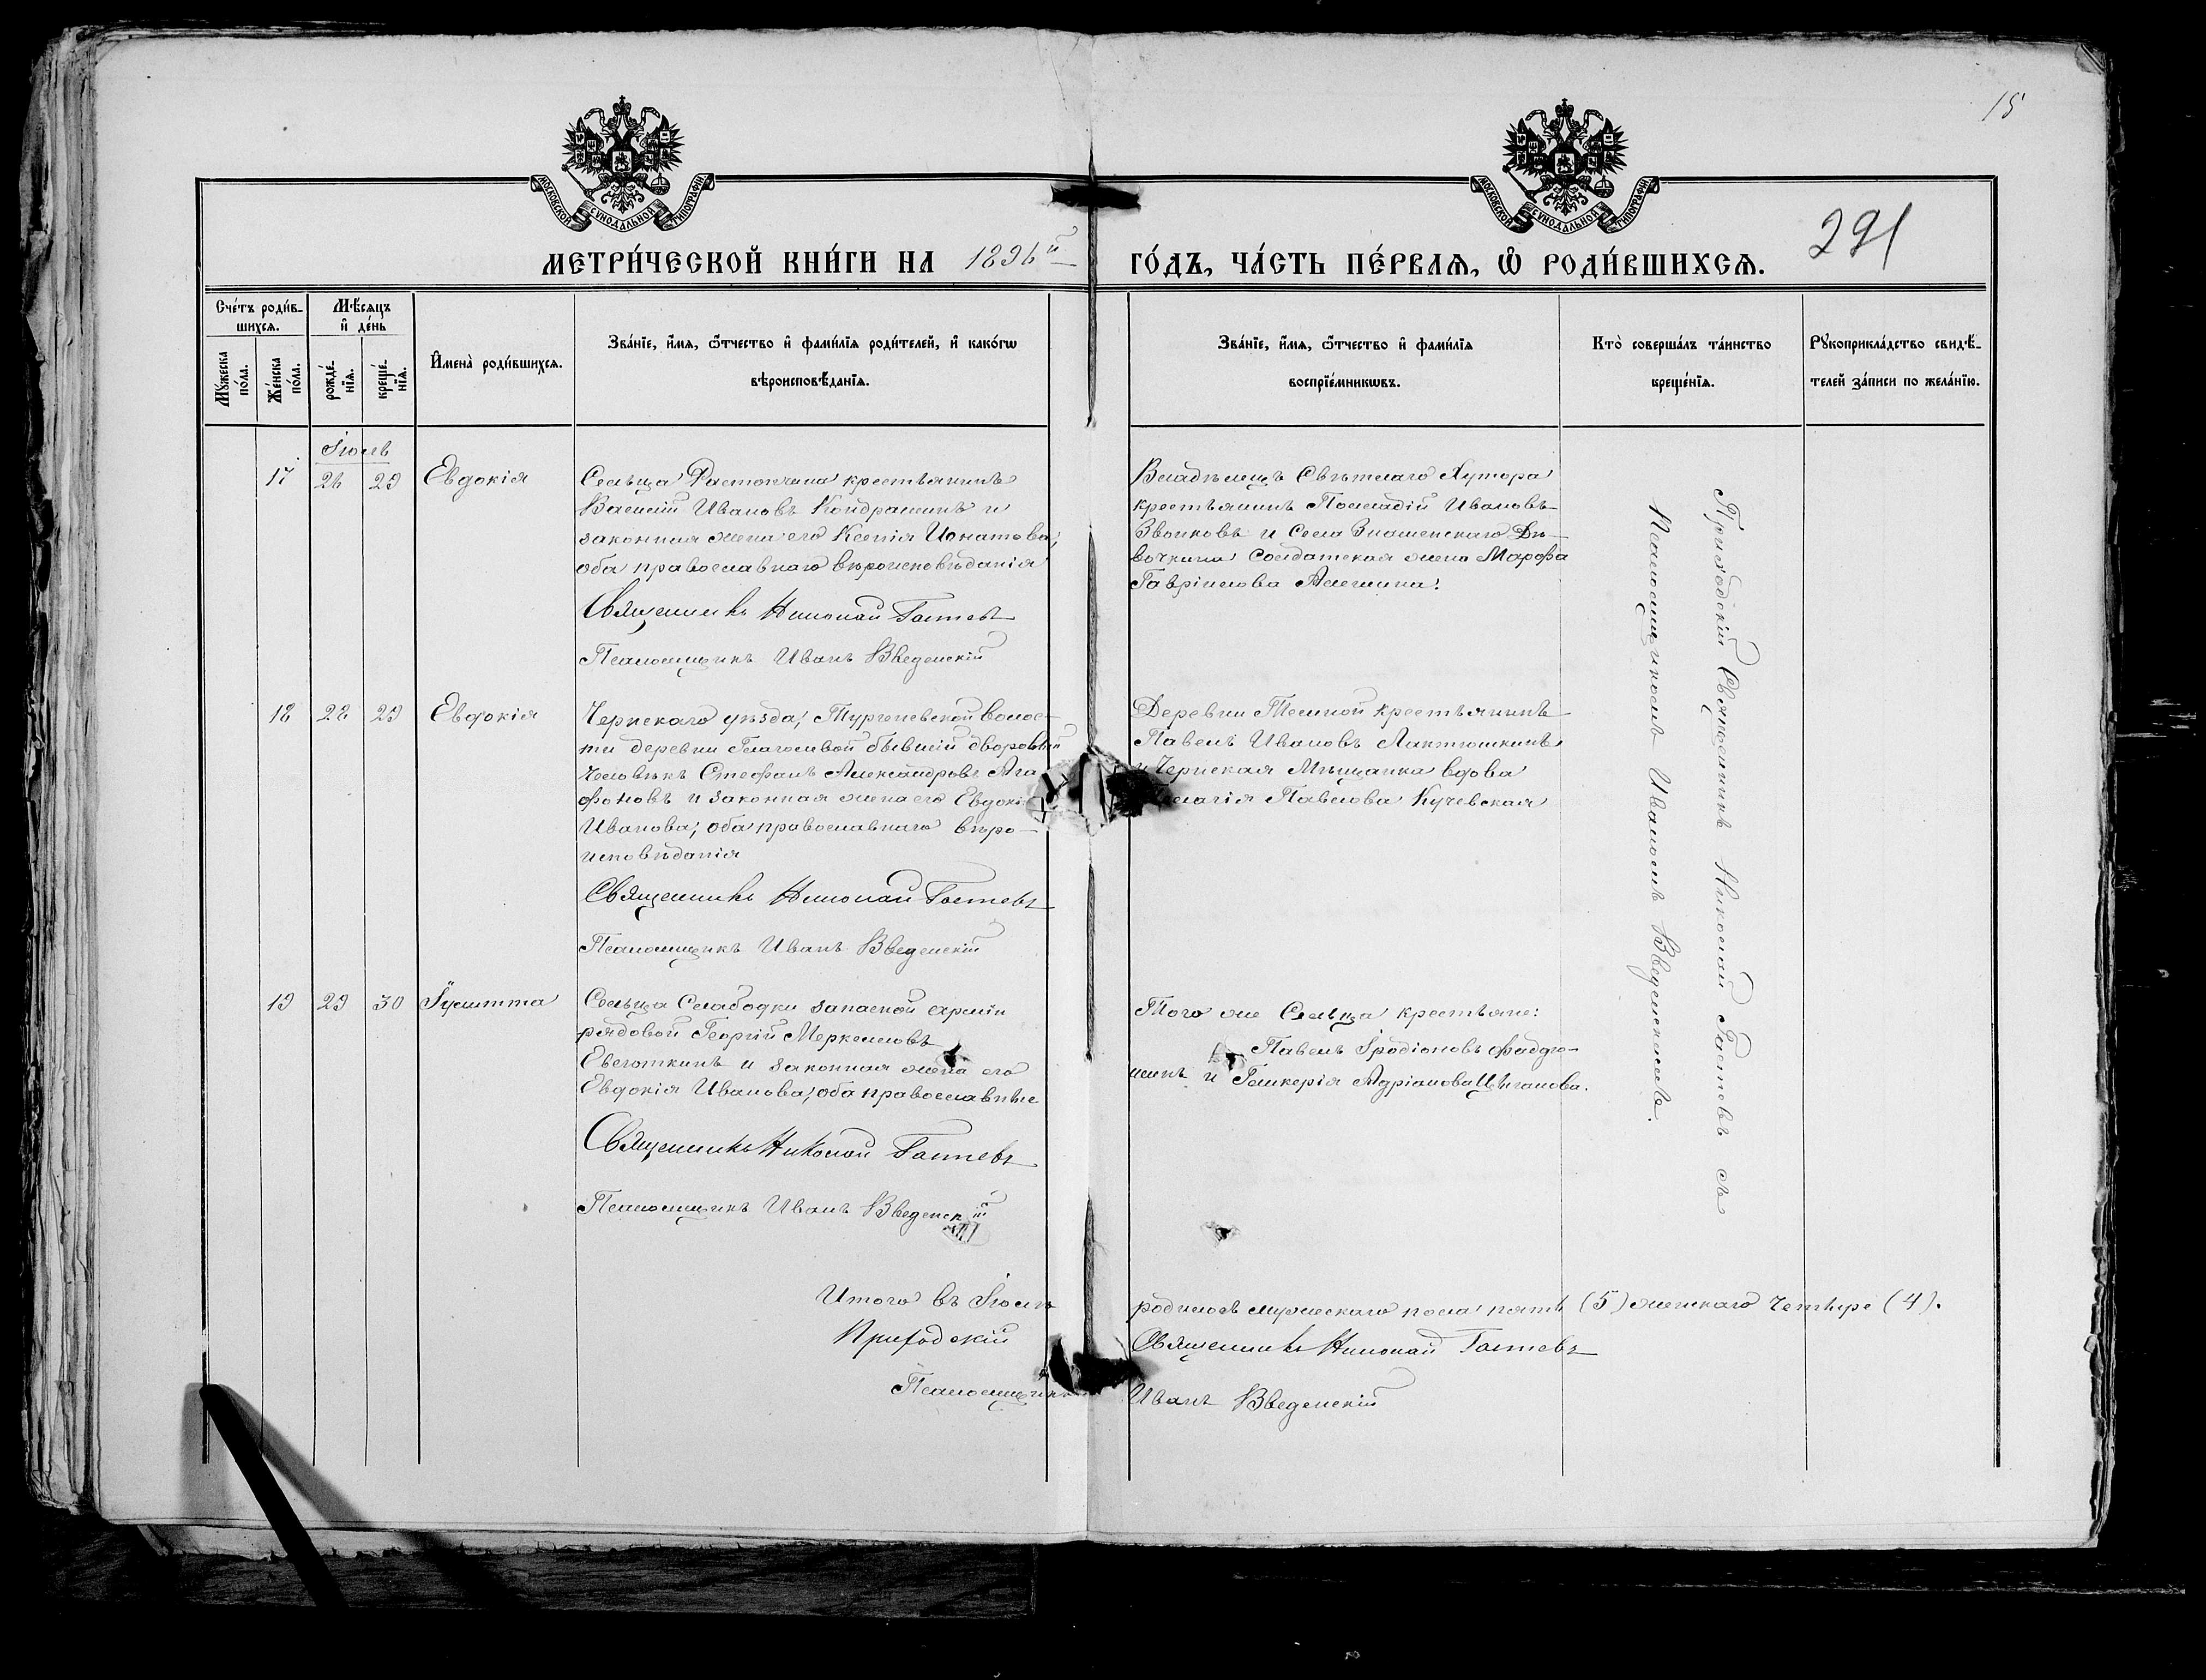 15
МОСКОВСКОЙ СѴНОДАЛЬНОЙ ТИПОГРАФІИ
МОСКОВСКОЙ СѴНОДАЛЬНОЙ ТИПОГРАФІИ
291
МЕТРИ́ЧЕСКОЙ КНИ́ГИ НА 1896й ГО́ДЪ, ЧА́СТЬ ПЕ́РВАЯ, Ѽ РОДИ́ВШИХСЯ.
Сче́тъ роди́в-
шихся.
Мѣ́сяцъ
и҆ де́нь
Мꙋ́жеска по́ла.
Же́нска по́ла.
рожде́-
нїя.
креще́-
нїя.
И҆мена̀ роди́вшихся.
Зва́нїе, и҆́мя, ѻ҆́тчество и҆ фами́лїя роди́телей, и҆ како́гѡ
вѣроисповѣ́данїя.
Зва́нїе, и҆́мя, ѻ҆́тчество и҆ фами́лїя
воспрїе́мникѡвъ.
Кто̀ соверша́лъ та́инство
креще́нїя.
Рꙋкоприкла́дство свидѣ́-
телей за́писи по жела́нїю.
Іюль
17 26 29 Евдокія
Сельца Растопчина крестьянинъ
Василій Ивановъ Кондрашинъ и
законная жена его Ксенія Игнатова;
оба православнаго вѣроисповѣданія
Священникъ Николай Гастевъ
Псаломщикъ Иванъ Введенскій
Владѣлецъ Свѣтлаго Хутора
крестьянинъ Полладій Ивановъ
Звонковъ и Села Знаменскаго Дѣ-
вочкина солдатская жена Марѳа
Гавріилова Алешина.
18 28 29 Евдокія
Чернскаго уѣзда, Тургеневской волос-
ти деревни Глаголевой бывшій дворовый
человѣкъ Стефанъ Александровъ Ага
фоновъ и законная жена его Евдокія
Иванова; оба православнаго вѣро-
исповѣданія
Священникъ Николай Гастевъ
Псаломщикъ Иванъ Введенскій
Деревни Темной крестьянинъ
Павелъ Ивановъ Лактюшкинъ
и Чернская Мѣщанка вдова
Павлова Кучевская
19 29 30 Іулитта
Сельца Слободки запасной арміи
рядовой Георгій Меркеловъ
Евсюткинъ и законная жена его
Евдокія Иванова; оба православные
Священникъ Николай Гастевъ
Псаломщикъ Иванъ Введенскій
Того же Сельца крестьяне:
Павелъ Іродіоновъ Фадю-
шинъ и Гликерія Адріанова Цыганова.
Приходскій Священникъ Николай Гастевъ съ
Псаломщикомъ Иваномъ Введенскимъ.
Итого въ Іюлѣ родилось мужескаго пола пять (5) женскаго четыре (4).
Приходскій Священникъ Николай Гастевъ
Псаломщикъ Иванъ Введенскій